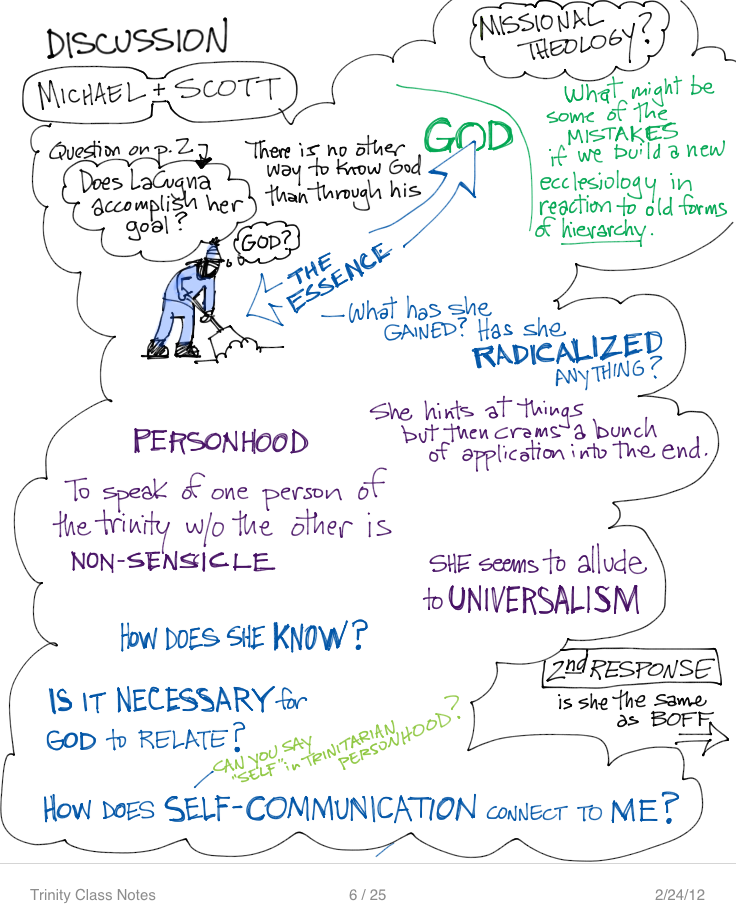 DISCUSSION
MICHAEL + SCOTT
MISSIONAL
THEOLOGY?
What might be
some of the
MISTAKES
if we build a new
ecclesiology in
reaction to old forms
of hierarchy.
GOD
Question on p.2
Does LaCugna
accomplish her
goal?
There is no other
way to know God
than through his
GOD?
THE
ESSENCE
– What has she
GAINED? Has she
RADICALIZED
ANYTHING?
She hints at things
but then crams a bunch
of application into the end.
PERSONHOOD
To speak of one person of
the trinity w/o the other is
NON-SENSICLE
SHE seems to allude
to UNIVERSALISM
HOW DOES SHE KNOW?
2nd RESPONSE
is she the same
as BOFF
IS IT NECESSARY for
GOD to RELATE?
CAN YOU SAY
"SELF" in TRINITARIAN
PERSONHOOD?
HOW DOES SELF-COMMUNICATION CONNECT TO ME?
Trinity Class Notes
6 / 25
2/24/12